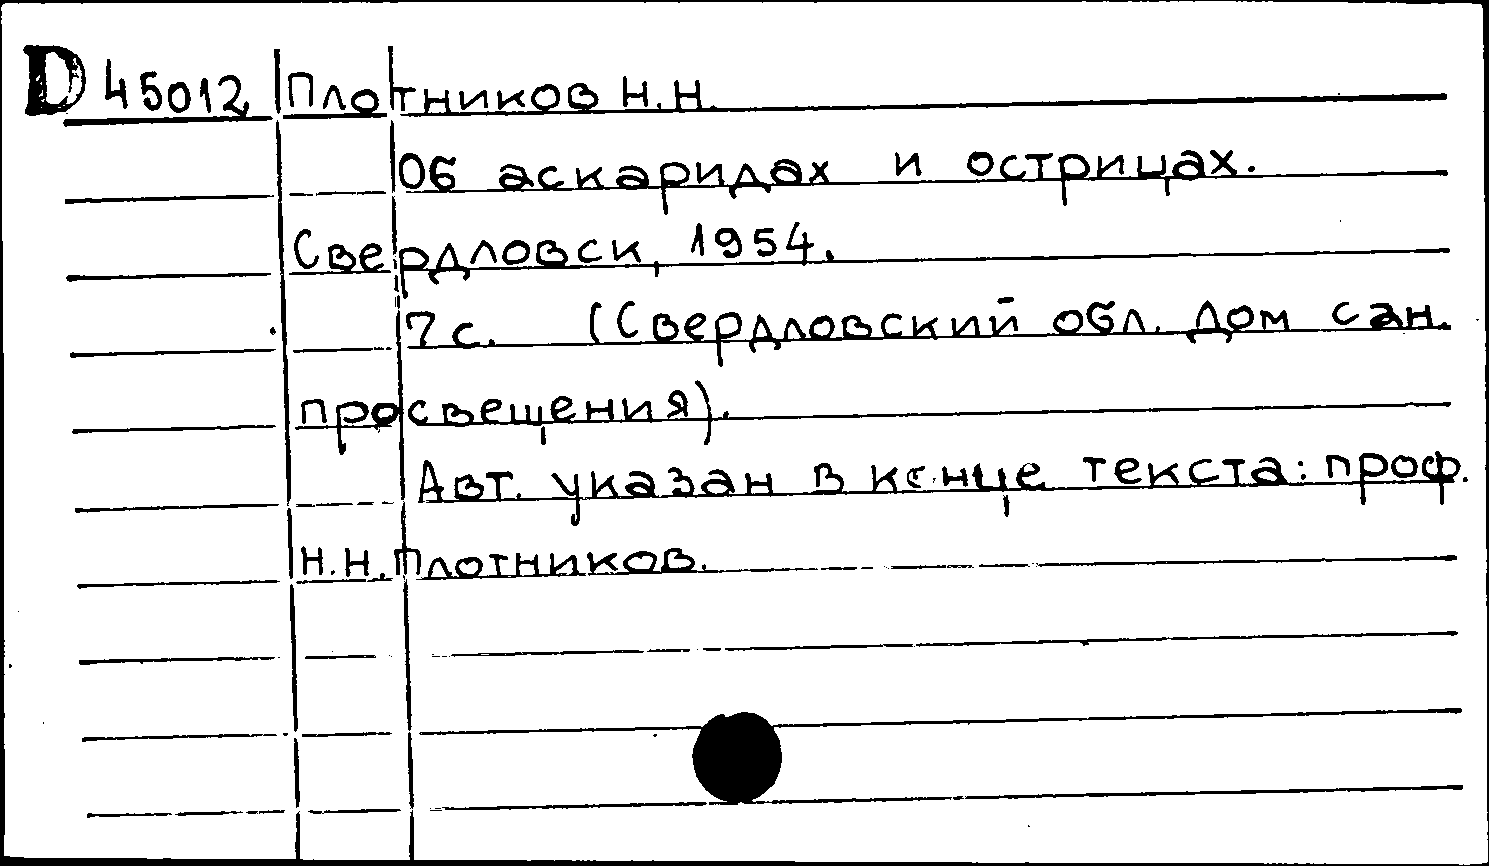 D 45012 Плотников Н.Н.
Об аскаридах и острицах.
Свердловск, 1954.
7 с. (Свердловский обл. дом сан.
просвещения).
Авт. указан в конце текста: проф.
Н.Н.Плотников.